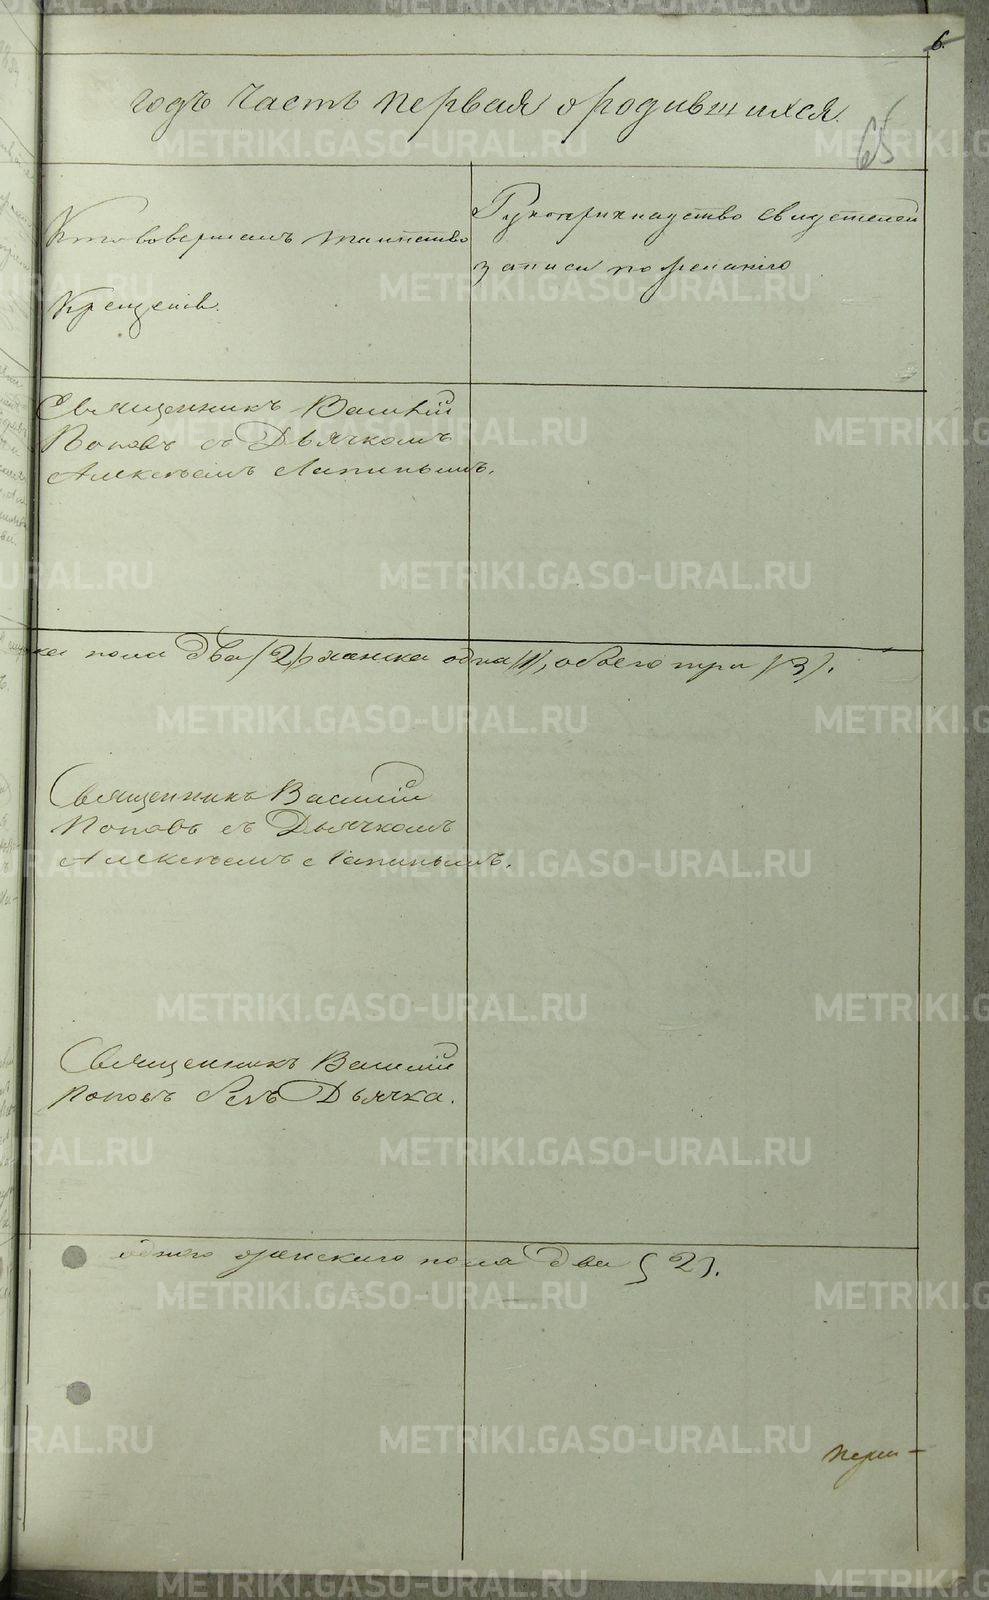 6.
65
годъ часть первая о родившихся.
Кто совершалъ таинство
Крещенія.
Рукоприкладство свидетелей
записи по желанію
Священникъ Василій
Поповъ съ Дьячкомъ
Алексѣемъ Лапинымъ.
пола два (2) женска одна (1), обоего три (3).
Священникъ Василій
Поповъ съ Дьячкомъ
Алексѣемъ Лапинымъ.
Священникъ Василій
Поповъ безъ Дьячка.
одного женскаго пола два (2).
METRIKI.GASO-URAL.RU